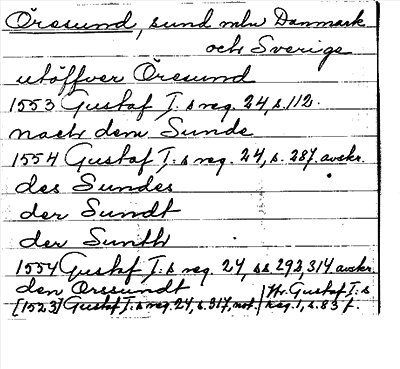 Öresund, sund mln Danmark
och Sverige
utöffver Öresund
1553 Gustaf I:s reg. 24, s. 112.
nach dem Sunde
1554 Gustaf I:s reg. 24, s. 287. avskr.
des Sundes
der Sundt
der Sunth
1554 Gustaf I:s reg. 24, ss 292, 314 avskr.
den Orssundt
[1523] Gustaf I:s reg. 24, s. 317, not. | Hr. Gustaf I:s
Reg. 1, s. 83 f.